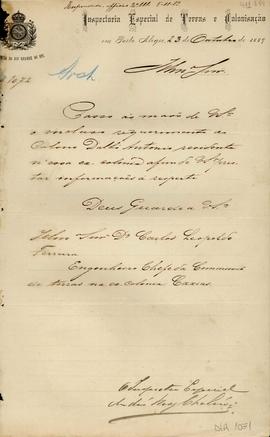 Inspectoria Especial de Terras e Colonisação
em Porto Alegre, 23 de Outubro de 1889
Illmo Snr.
Passo ás mãos de VSª
o incluso requerimento do
Colono Dalle Antonio residente
n'essa ex-colonia afim de VSª pres-
tar informações á respeito.
Deus Guarde a VSª
Illmo Snr Dr Carlos Leopoldo
Ferreira
Engenheiro Chefe da Commissão
de terras na ex colonia Caxias.
O Inspector Especial